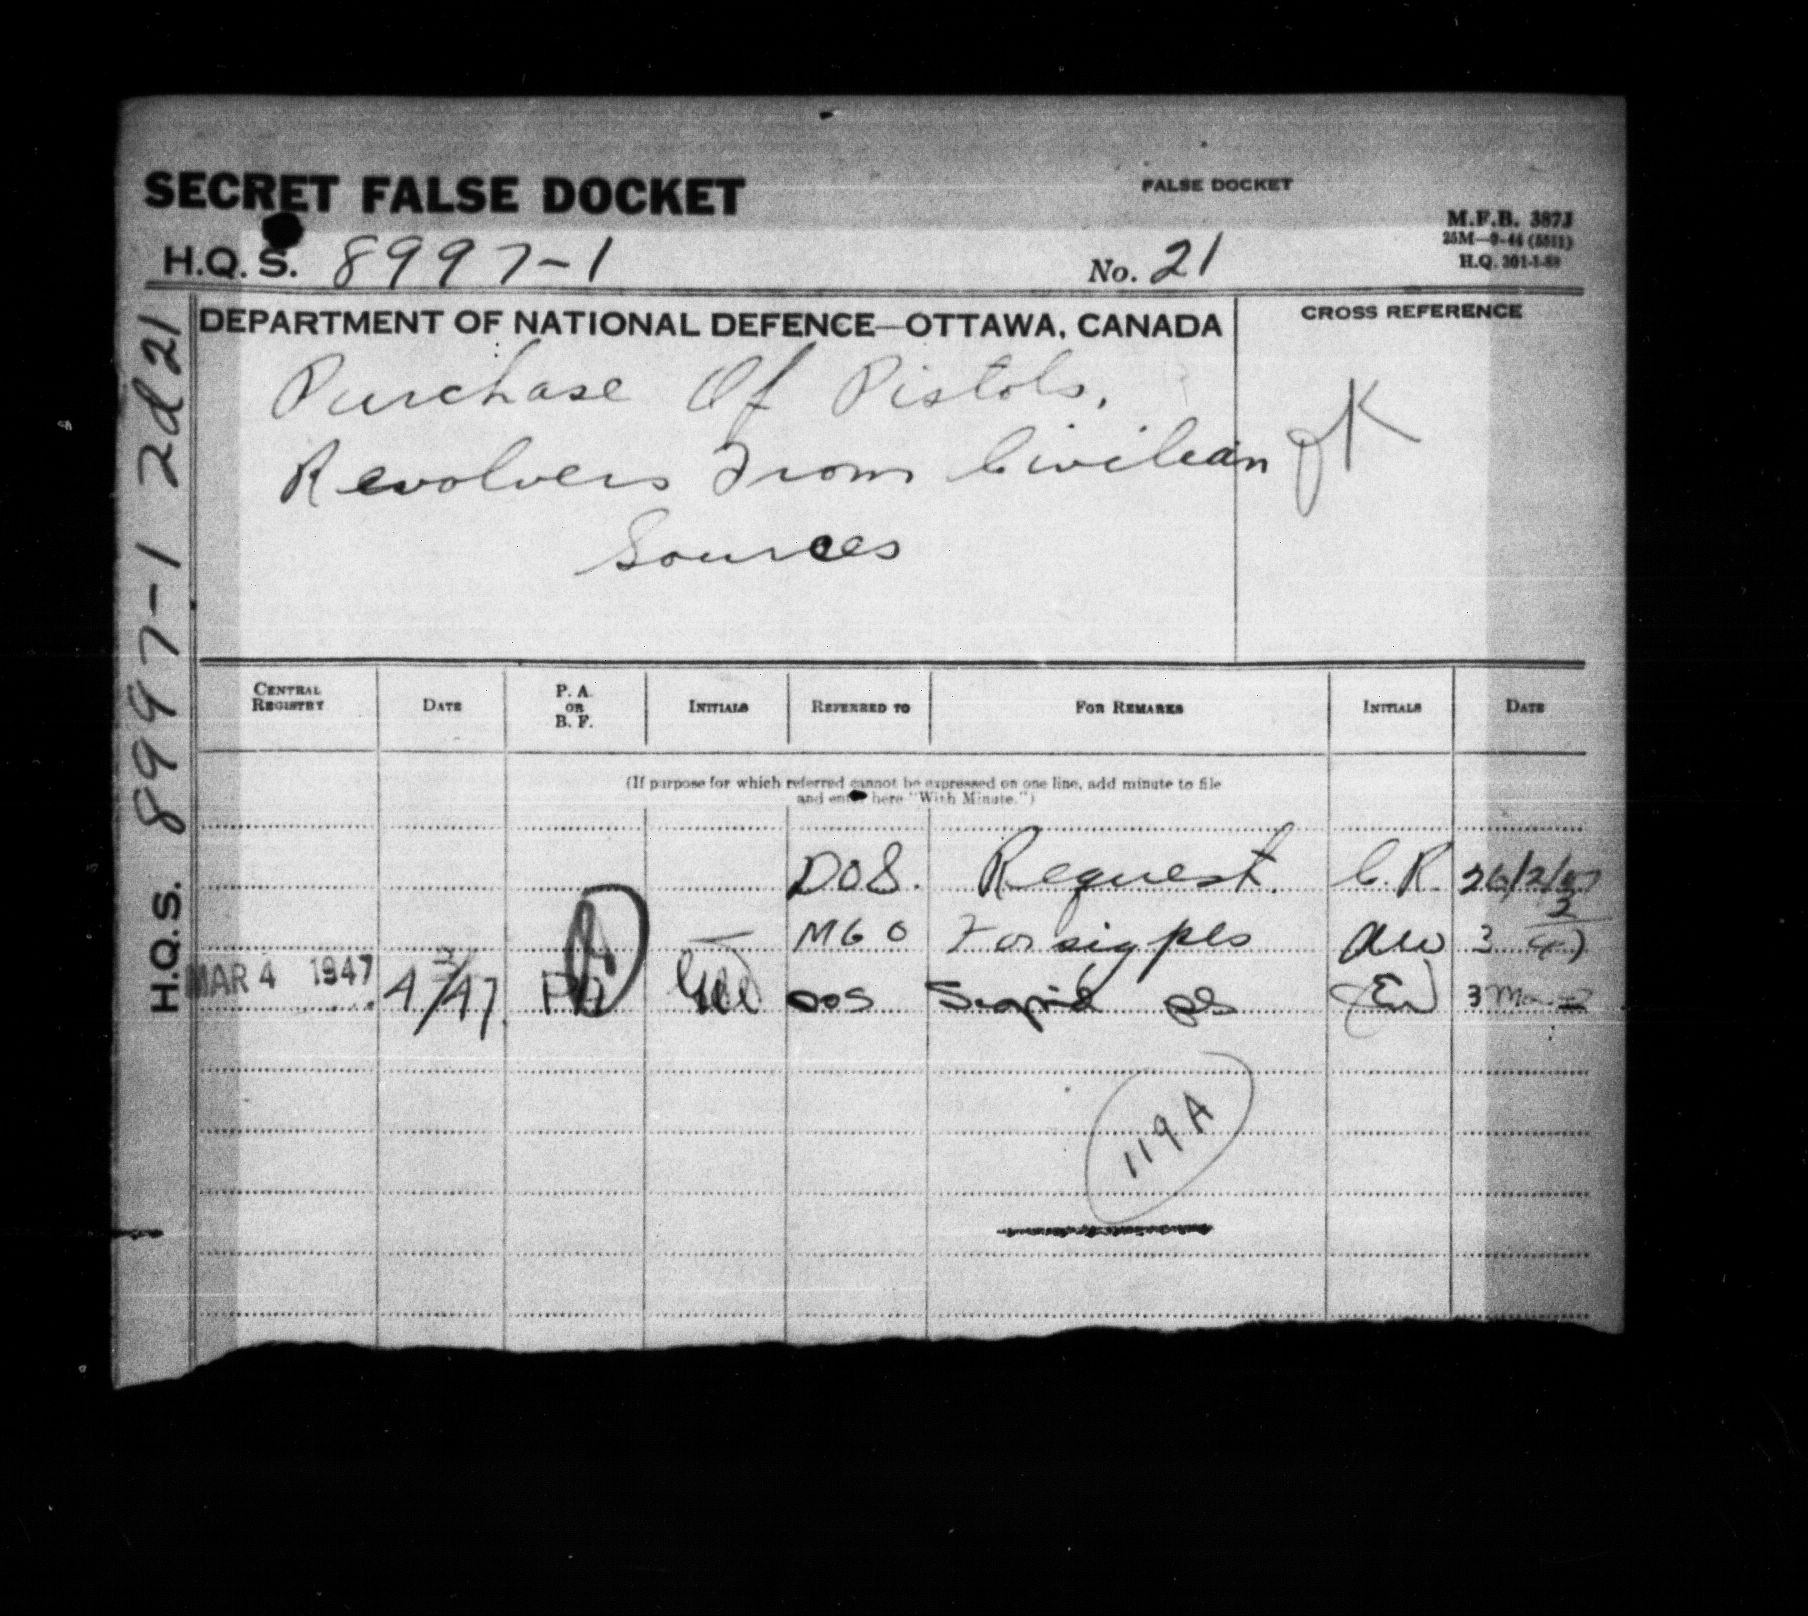 SECRET FALSE DOCKET
FALSE DOCKET
M.F.B. 387J
25M—9-44 (5511)
H.Q. 301-1-89
H.Q. S. 8997-1
No. 21
H.Q.S. 8997-1 2d 21
DEPARTMENT OF NATIONAL DEFENCE—OTTAWA, CANADA
CROSS REFERENCE
Purchase Of Pistols,
Revolvers From Civilian
Sources
CENTRAL REGISTRY
DATE
P. A. OR B. F.
INITIALS
REFERRED TO
FOR REMARKS
INITIALS
DATE
(If purpose for which referred cannot be expressed on one line, add minute to file
and enter here "With Minute.")
DOS. Request. C.R. 26/2/47
MGO For sig pls 3
MAR 4 1947 4/3/47 PA DOS Signed pls 3
119A